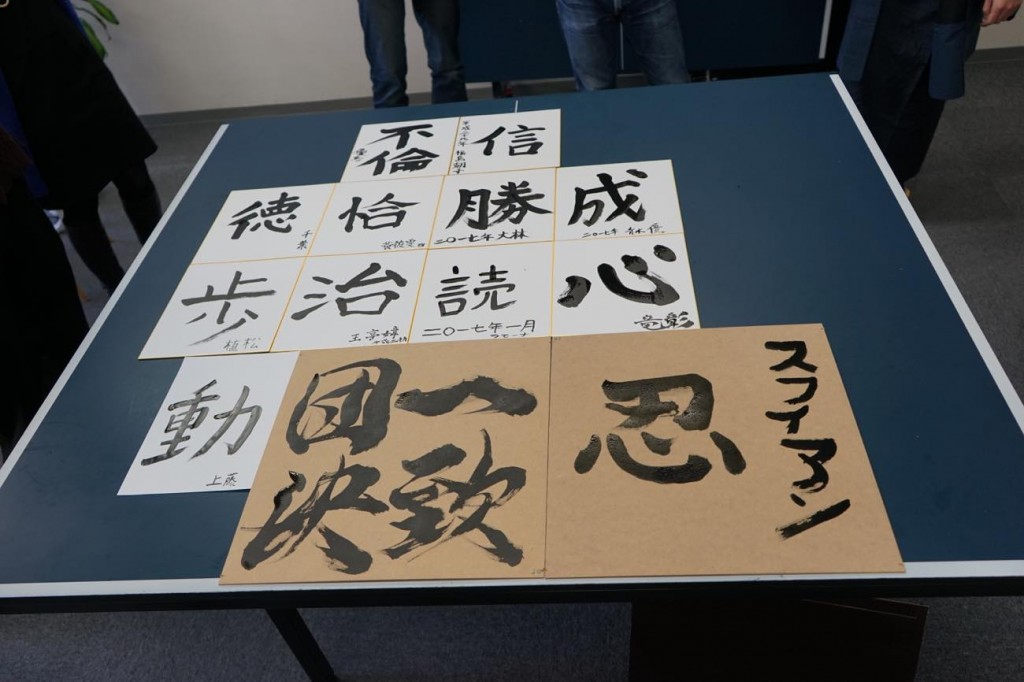 不
倫
信
平成二十九年
徳
千葉
恰
勝
二〇一七年大林
成
二〇一七年
歩
植松
治
読
二〇一七年一月
心
動
上藤
一致
団決
スフイアン
忍